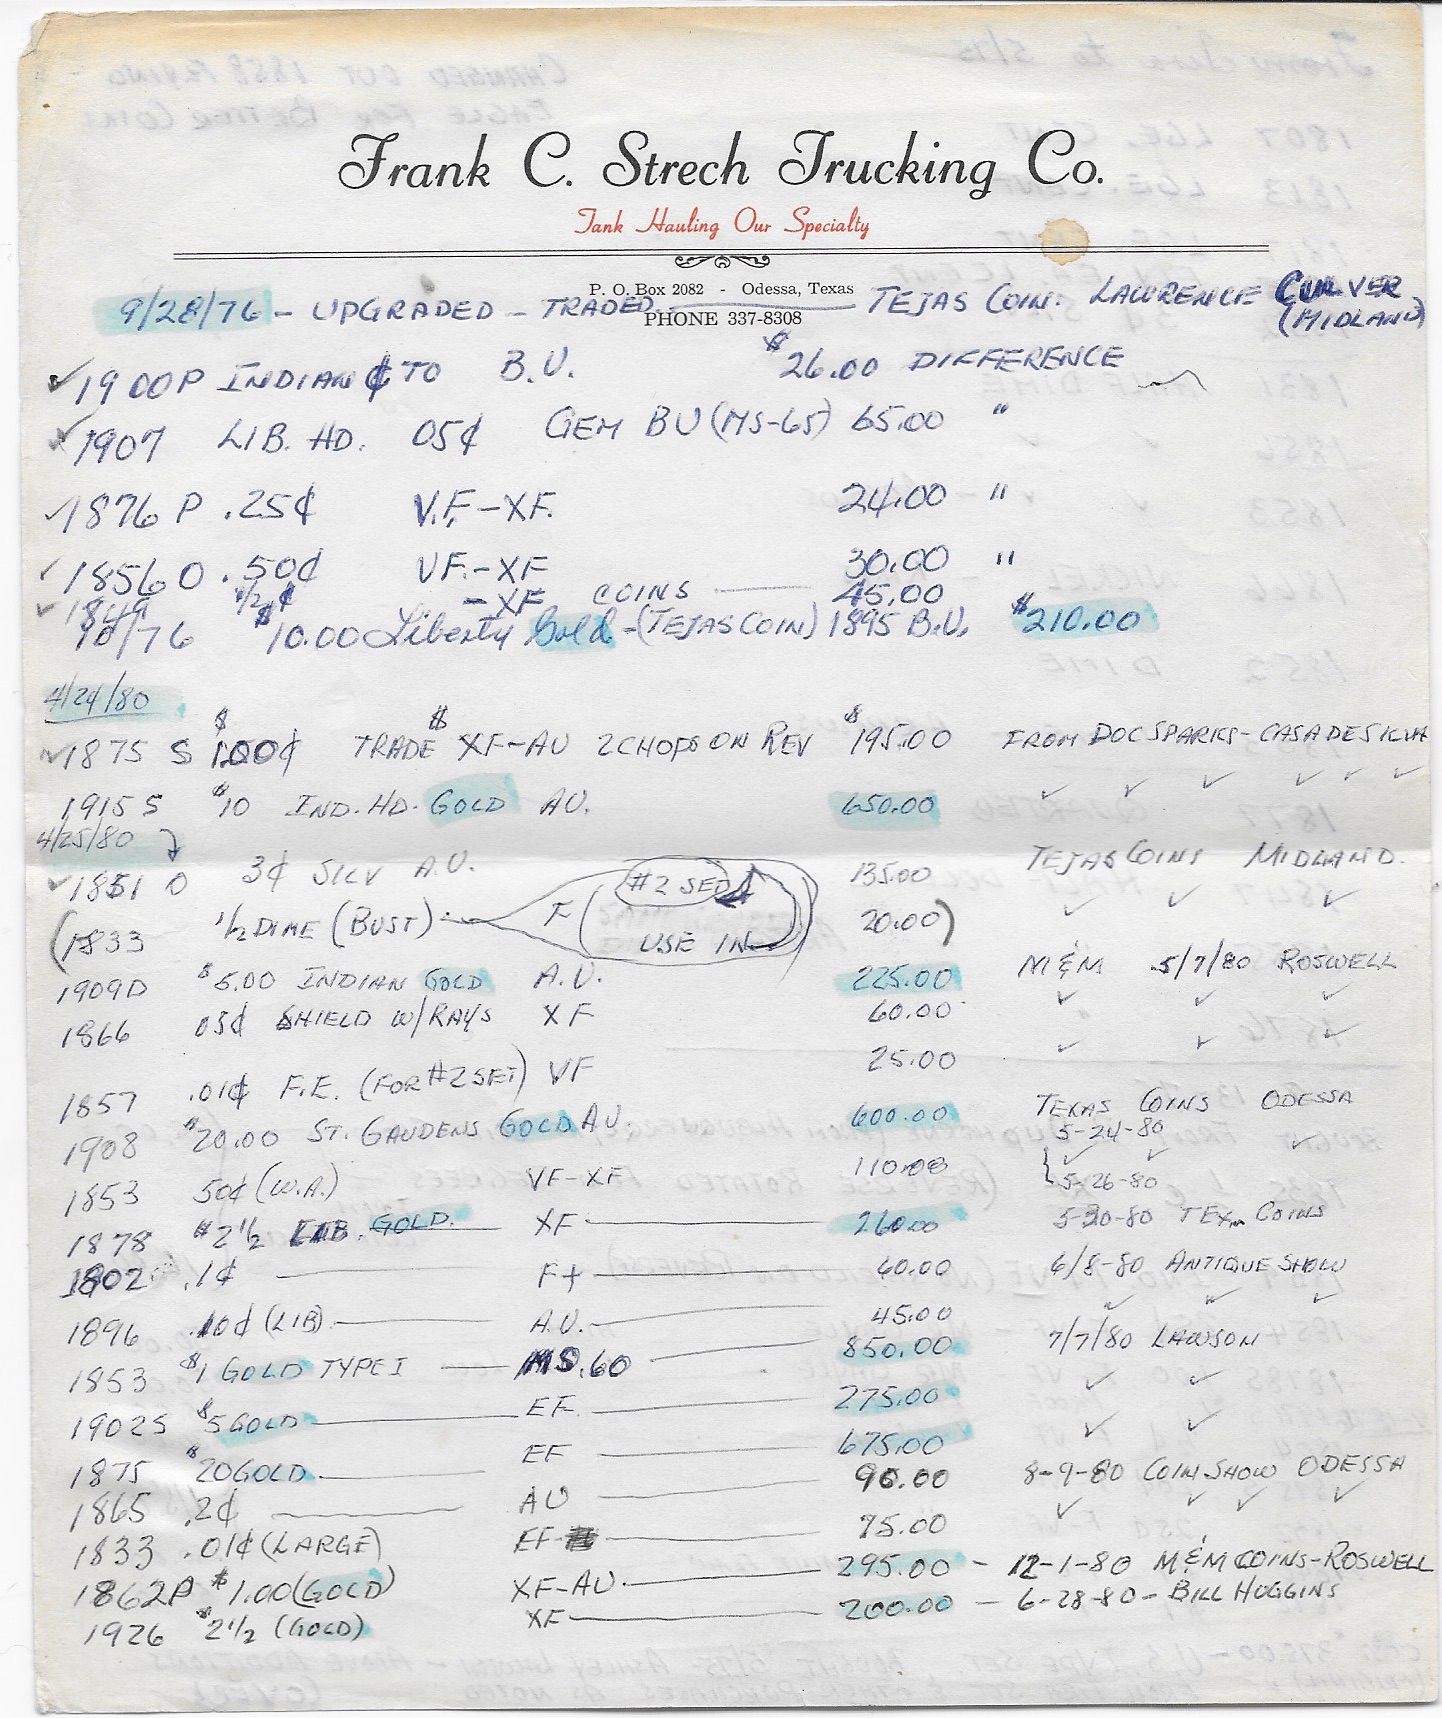 Frank C. Strech Trucking Co.
Tank Hauling Our Specialty
P. O. Box 2082 - Odessa, Texas
PHONE 337-8308
9/28/76 - UPGRADED - TRADED TEJAS COIN. LAWRENCE CULVER (MIDLAND)
✓ 1900P INDIAN ¢ TO B.U. $26.00 DIFFERENCE
✓ 1907 LIB. HD. 05¢ GEM BU (MS-65) 65.00 "
✓ 1876 P .25¢ V.F.-XF. 24.00 "
✓ 1856 O .50¢ VF.-XF 30.00 "
✓ 1849 1/2 ¢ - XF COINS 45.00
10/76 $10.00 Liberty Gold - (TEJAS COIN) 1895 B.U. $210.00
4/24/80
✓ 1875 S $1.00¢ TRADE $ XF-AU 2 CHOPS ON REV $195.00 FROM DOC SPARKS - CASA DE SILVA
1915 S $10 IND. HD. GOLD AU. 650.00 ✓ ✓ ✓ ✓ ✓
4/25/80
✓ 1851 O 3¢ SILV A.U. 135.00 TEJAS COINS MIDLAND.
(1833 1/2 DIME (BUST) F #2 SED USE IN 20.00) ✓ ✓ ✓
1909D $5.00 INDIAN GOLD A.U. 225.00 M & M 5/7/80 ROSWELL
1866 05¢ SHIELD W/RAYS XF 60.00 ✓ ✓ ✓
1857 .01¢ F.E. (FOR #2 SET) VF 25.00 ✓ ✓ ✓
1908 $20.00 ST. GAUDENS GOLD AU. 600.00 TEXAS COINS ODESSA 5-24-80
1853 50¢ (W.A.) VF-XF 110.00 ✓ ✓ ✓ 5-26-80
1878 $2 1/2 LIB. GOLD. XF 260.00 5-30-80 TEX COINS
1802 .1¢ F+ 60.00 6/8-80 ANTIQUE SHOW
1896 .10¢ (LIB) A.U. 45.00 ✓ ✓ ✓
1853 $1 GOLD TYPE I MS.60 850.00 7/7/80 LAWSON
1902S $5 GOLD EF 275.00 ✓ ✓
1875 $20 GOLD EF 675.00 ✓ ✓
1865 .2¢ AU 90.00 8-9-80 COIN SHOW ODESSA
1833 .01¢ (LARGE) EF 75.00 ✓ ✓ ✓ ✓
1862P $1.00 (GOLD) XF-AU. 295.00 - 12-1-80 M & M COINS - ROSWELL
1926 $2 1/2 (GOLD) XF 200.00 - 6-28-80 - BILL HUGGINS